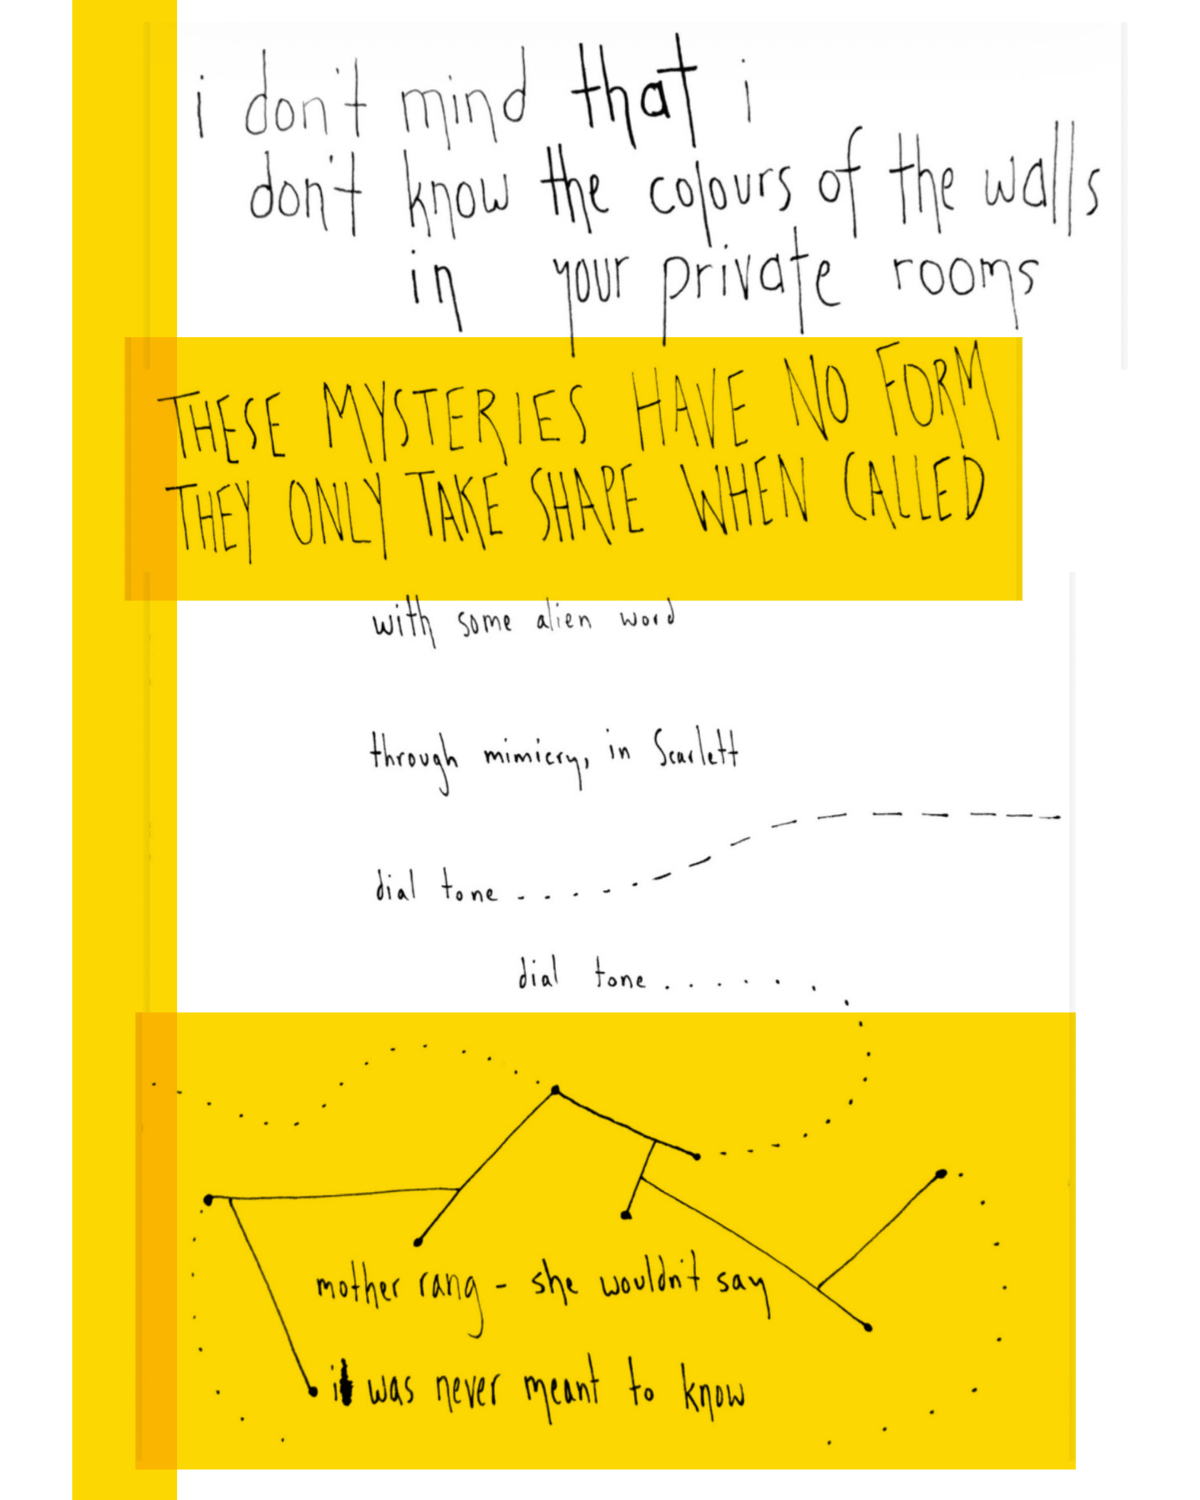 i don't mind that i
don't know the colours of the walls
in your private rooms
THESE MYSTERIES HAVE NO FORM
THEY ONLY TAKE SHAPE WHEN CALLED
with some alien word
through mimicry, in Scarlett
dial tone
dial tone
mother rang - she wouldn't say
i was never meant to know